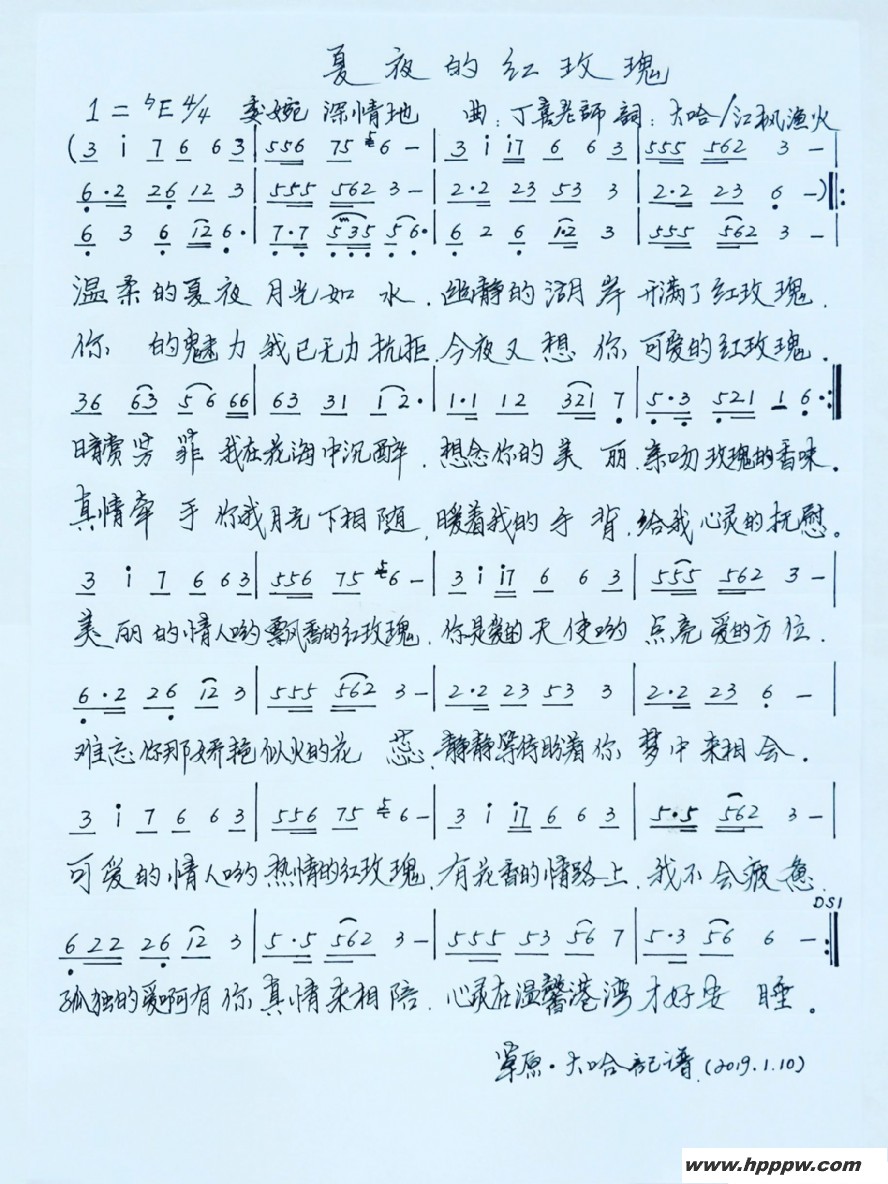 夏夜的红玫瑰
1=♭E 4/4 委婉 深情地 曲:丁喜老師 詞:大哈/江枫渔火
(3 i 7 6 6 3 | 556 75 6 - | 3 i i7 6 6 3 | 555 562 3 - |
6·2 26 12 3 | 555 562 3 - | 2·2 23 53 3 | 2·2 23 6 -)‖:
6 3 6 12 6· | 7·7 535 56· | 6 2 6 1·2 3 | 555 562 3 - |
温柔的夏夜月光如水.幽静的湖岸开满了红玫瑰.
你的魅力我已无力抗拒.今夜又想你可爱的红玫瑰.
36 63 56 66 | 63 31 12· | 1·1 12 321 7 | 5·3 521 1 6·:‖
暗赏芳菲我在花海中沉醉.想念你的美丽.亲吻玫瑰的香味。
真情牵手你我月光下相随,暖着我的手背.给我心灵的抚慰。
3 i 7 6 63 | 556 75 56 - | 3 i i7 6 6 3 | 555 562 3 - |
美丽的情人哟飘香的红玫瑰.你是爱的天使哟点亮爱的方位.
6·2 26 12 3 | 555 562 3 - | 2·2 23 53 3 | 2·2 23 6 - |
难忘你那娇艳似火的花蕊.静静等待盼着你梦中来相会.
3 i 7 6 6 3 | 556 75 56 - | 3 i i7 6 6 3 | 5·5 562 3 - |
可爱的情人哟热情的红玫瑰.有花香的情路上.我不会疲惫.
DS1
622 26 12 3 | 5·5 562 3 - | 555 53 56 7 | 5·3 56 6 - :‖
孤独的爱啊有你真情来相陪.心灵在温馨港湾才好安睡。
草原·大哈記谱.(2019.1.10)
www.hpppw.com